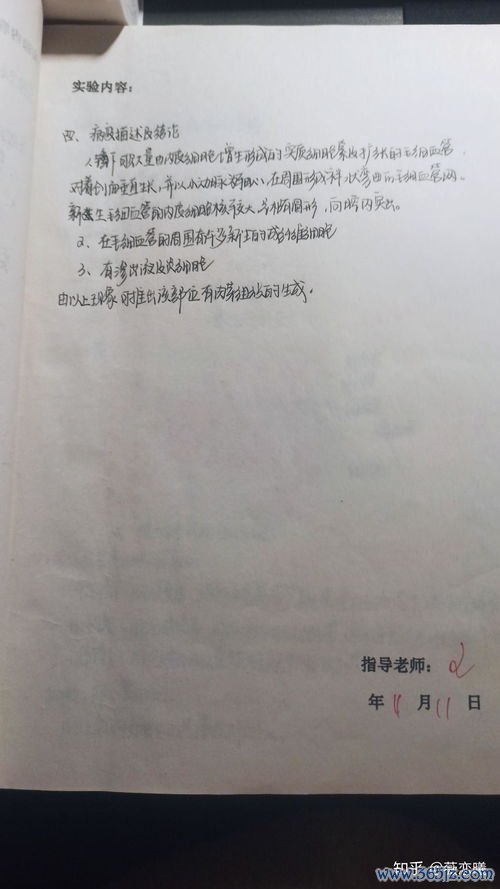 实验内容：
四、病变描述及结论
1、镜下可见大量由内皮细胞增生形成的实质细胞索及扩张的毛细血管，
对着创面垂直生长，并以小动脉为轴心，在周围形成袢状弯曲的毛细血管网。
新生毛细血管的内皮细胞核较大，呈椭圆形，向腔内突出。
2、在毛细血管的周围有许多新生的成纤维细胞
3、有渗出液及炎细胞
由以上现象可推出该部位有肉芽组织的生成。
指导老师：
年 11 月 11 日
知乎 @燕奕曦
www.365jz.com